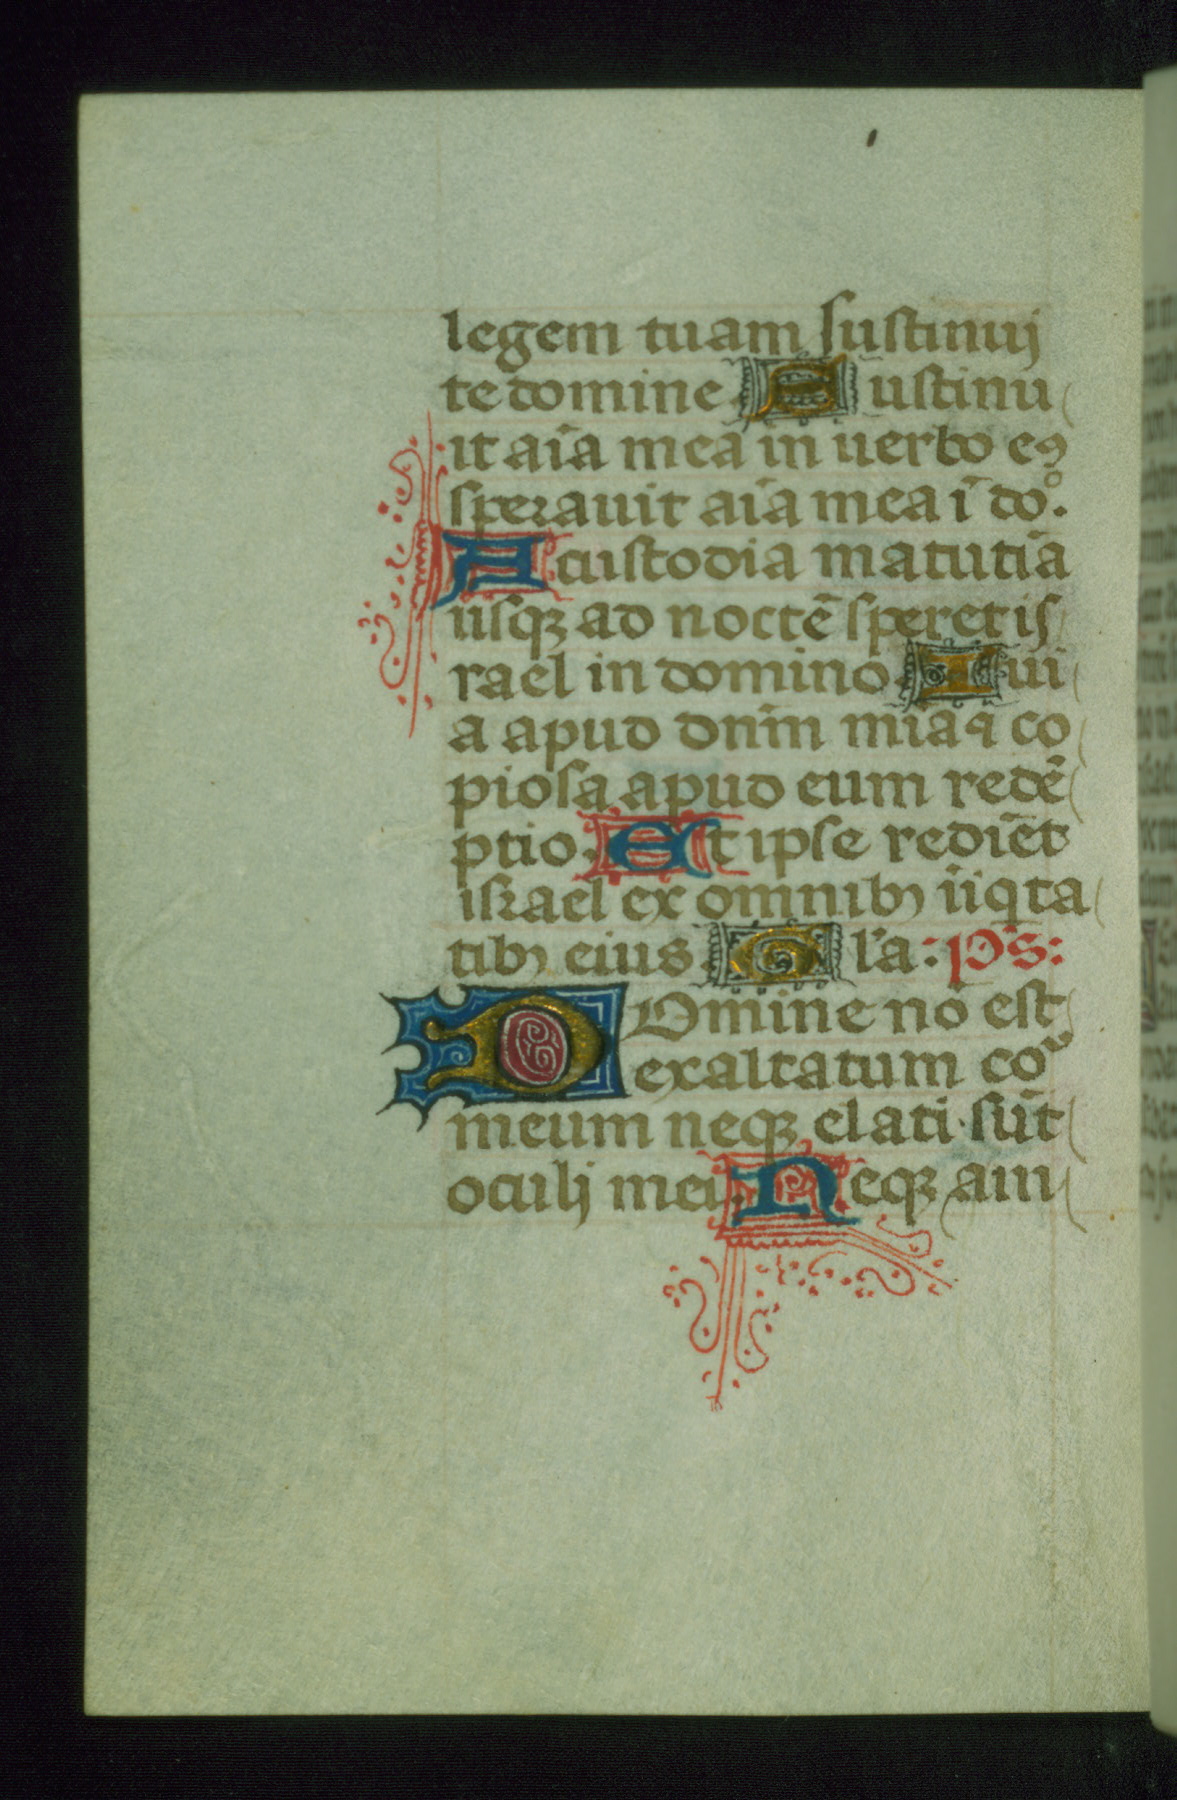 legem tuam sustinuj
te domine Sustinu
it aīa mea in uerbo eꝯ
sperauit aīa mea ī do°.
A custodia matutīa
usqꝫ ad noctē speret is
rael in domino. Qui
a apud dnīm mīa ꝗ co
piosa apud eum redē
ptio. Et ipse redīet
israel ex omnibꝫ īiqta
tibꝫ eius Gl'a: Ps:
Domine nō est
exaltatum coʳ
meum neqꝫ elati sūt
oculj mei. Neqꝫ am